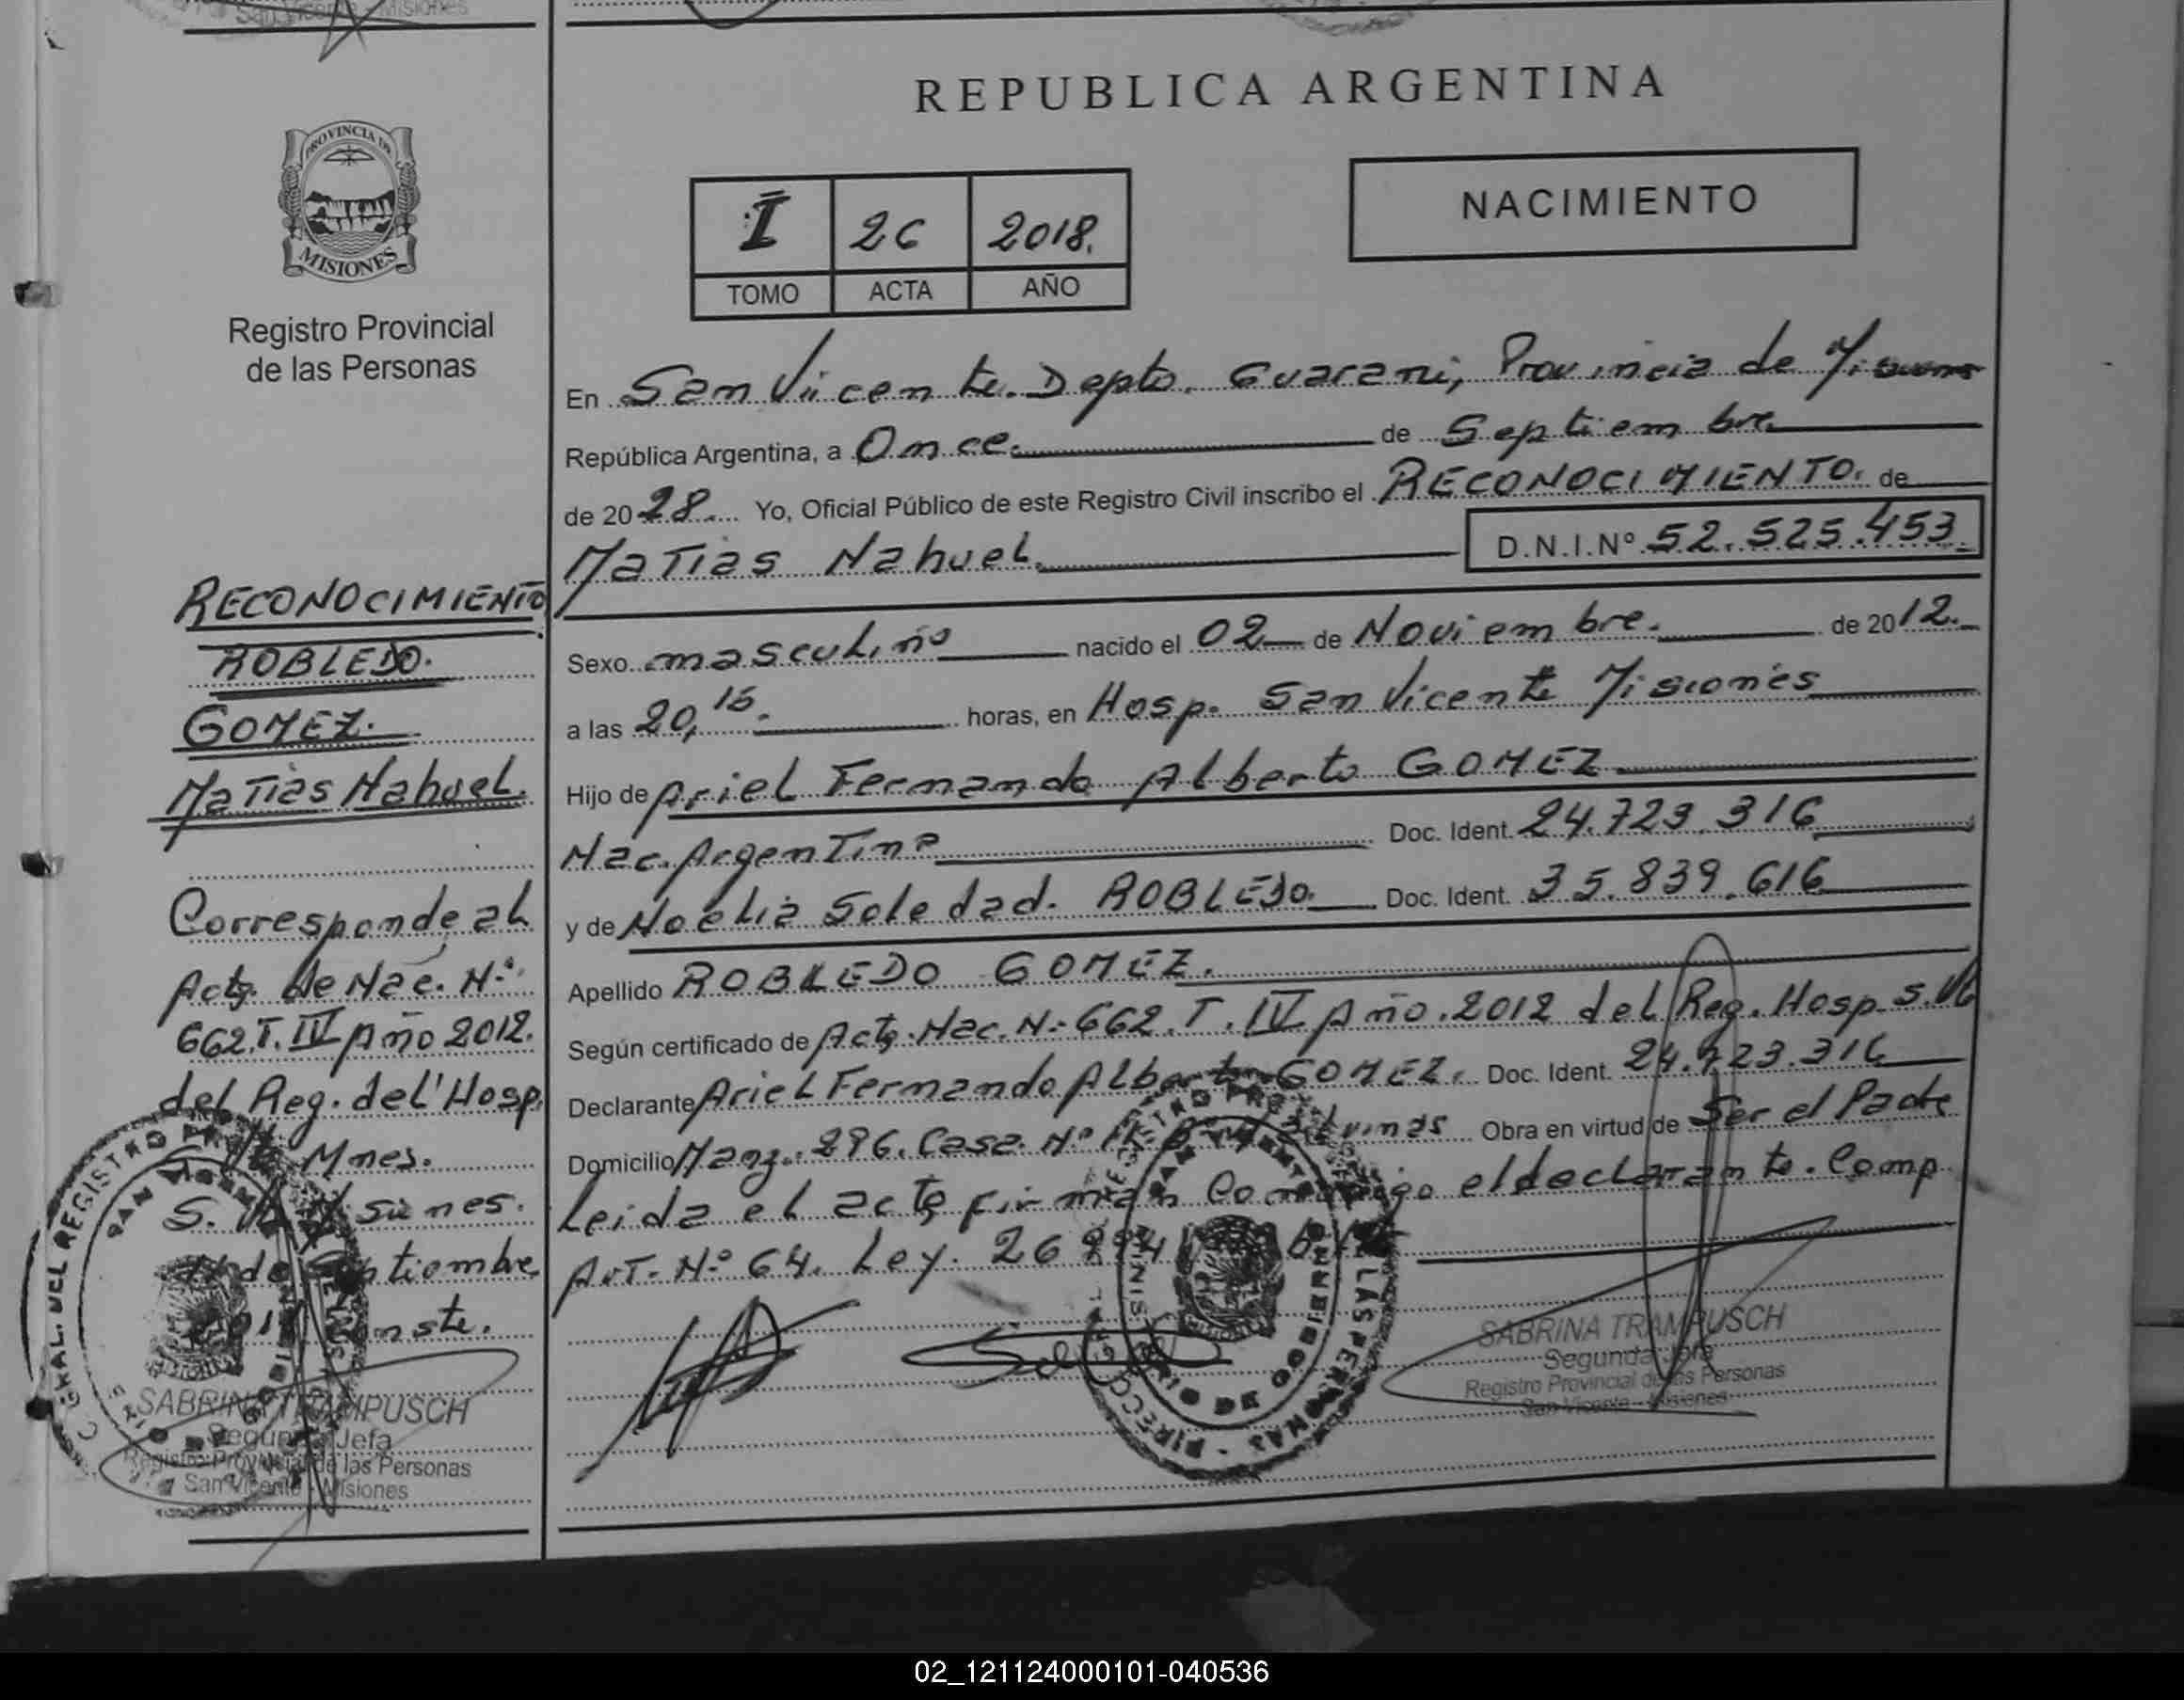 REPUBLICA ARGENTINA
PROVINCIA DE
MISIONES
Registro Provincial
de las Personas
I 26 2018.
TOMO ACTA AÑO
NACIMIENTO
En San Vicente. Depto. Guarani, Provincia de Misiones
República Argentina, a Once. de Septiembre.
de 20 28. Yo, Oficial Público de este Registro Civil inscribo el RECONOCIMIENTO. de
Matias Nahuel. D.N.I.Nº 52.525.453.
Sexo masculino nacido el 02 de Noviembre. de 20 12.
a las 20,15. horas, en Hosp. San Vicente Misiones
Hijo de Ariel Fernando Alberto GOMEZ
Nac. Argentina Doc. Ident. 24.723.316
y de Noelia Soledad. ROBLEDO. Doc. Ident. 35.839.616
Apellido ROBLEDO GOMEZ.
Según certificado de Acta. Nac. N.- 662. T. IV Año. 2012 del Reg. Hosp. S. Vte
Declarante Ariel Fernando Alberto GOMEZ. Doc. Ident. 24.723.316
Domicilio Manz. 296. Casa. Nº Obra en virtud de Ser el Padre
Leida el acta firman Conmigo el declarante. Comp.
Art. Nº 64. Ley. 26
SABRINA TRAMPUSCH
Segunda Jefa
Registro Provincial de las Personas
San Vicente - Misiones
RECONOCIMIENTO
ROBLEDO.
GOMEZ.
Matias Nahuel.
Corresponde al
Acta. de Nac. Nº
662.T. IV Año 2012.
del Reg. del Hosp.
Mnes.
S. Misiones.
de Septiembre
Conste.
SABRINA TRAMPUSCH
Segunda Jefa
Registro Provincial de las Personas
San Vicente - Misiones
02_121124000101-040536